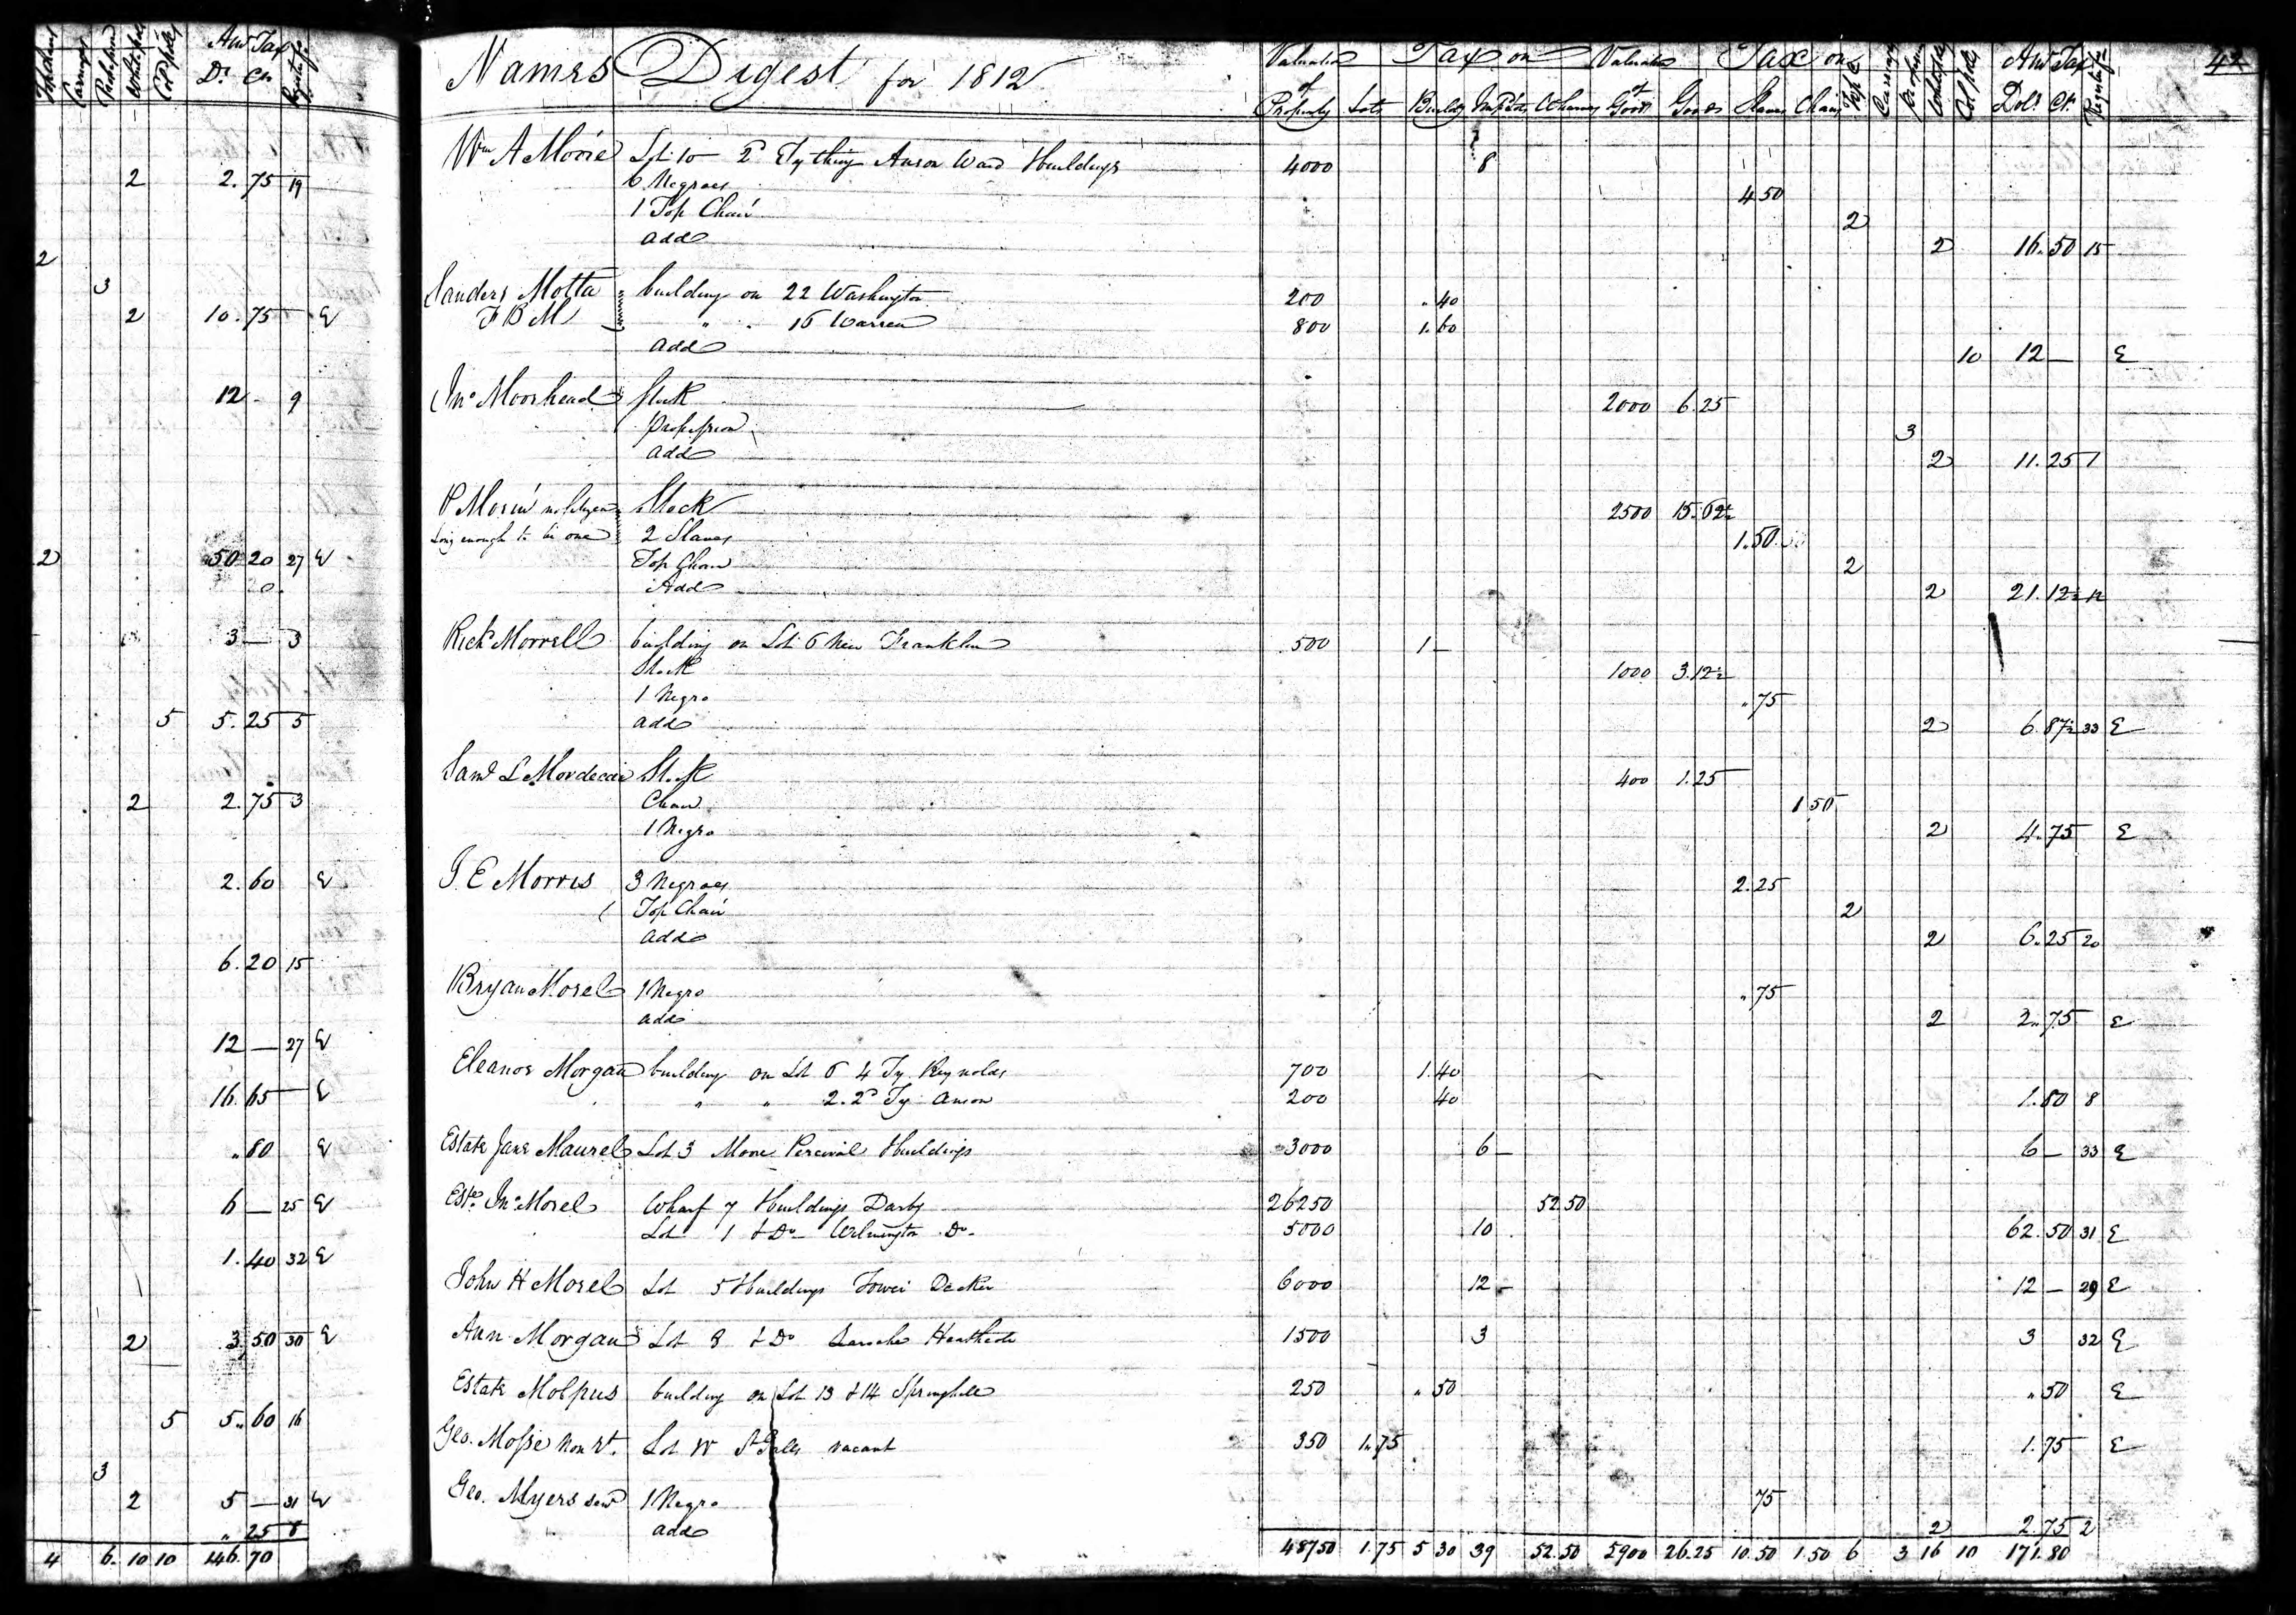 Top chairs Carriages Profession White poll Col polls Amt Tax Registry
Ds Cts
2 2.75 19
2
3
2 10.75 E
12 - 9
2 50 20 27 E
3 — 3
5 5.25 5
2 2.75 3
2.60 E
6.20 15
12 — 27 E
16.65 E
„ 80 E
6 — 25 E
1.40 32 E
2 3.50 30 E
5 5„60 16
3
2 5 — 31 E
„ 25 8
4 6 10 10 146.70
Names Digest for 1812 Valuation Tax on Valuation Tax on Amt Tax 42
of Property Lots Buildg Wharves of Goods Goods Slaves Chairs Top C Carriages Profession White poll Col polls Dols Cts Registry
Wm A Moore Lot 10 2d Tything Anson Ward & buildings 4000 8
6 Negroes 4 50
1 Top Chair 2
add 2 16.50 15
Sanders Motta building on 22 Washington 200 „ 40
F B M „ „ 16 Warren 800 1.60
add 10 12 — E
Jno Moorhead Stock 2000 6.25
profession 3
add 2 11.25 1
P Morin no Citizen Stock 2500 15.62½
long enough to be one 2 Slaves 1.50
Top Chair 2
Add 2 21.12½ 12
Richd Morrell building on Lot 6 New Franklin 500 1 —
Stock 1000 3.12½
1 Negro „ 75
add 2 6.87½ 33 E
Saml L Mordecai Stock 400 1.25
Chair 1 50
1 Negro 2 4.75 E
J. E Morris 3 Negroes 2.25
Top Chair 2
add 2 6.25 20
Bryan Morel 1 Negro „ 75
add 2 2.75 E
Eleanor Morgan building on Lot 6 4 Ty Reynolds 700 1.40
„ „ 2. 2d Ty Anson 200 40 1.80 8
Estate Jane Maurel Lot 3 Moore Percival & buildings 3000 6 — 6 — 33 E
Este Jno Morel Wharf 7 & buildings Darby 26250 52 50
Lot 1 & Do Wilmington Do 5000 10 62.50 31 E
John H Morel Lot 5 & buildings Tower Decker 6000 12 — 12 — 29 E
Ann Morgan Lot 8 & Do Laroche Heathcote 1500 3 3 32 E
Estate Molpus building on Lot 13 & 14 Springhill 250 „ 50 „ 50 E
Geo. Mosse Non Rt. Lot W St Galls vacant 350 1.75 1.75 E
Geo. Myers senr 1 Negro 75
add 2 2.75 2
48750 1.75 5 30 39 52.50 5900 26.25 10.50 1.50 6 3 16 10 171.80